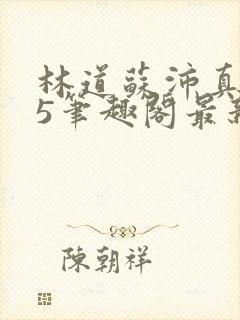 林道蘇沛真
5筆趣閣最新
陳朝祥